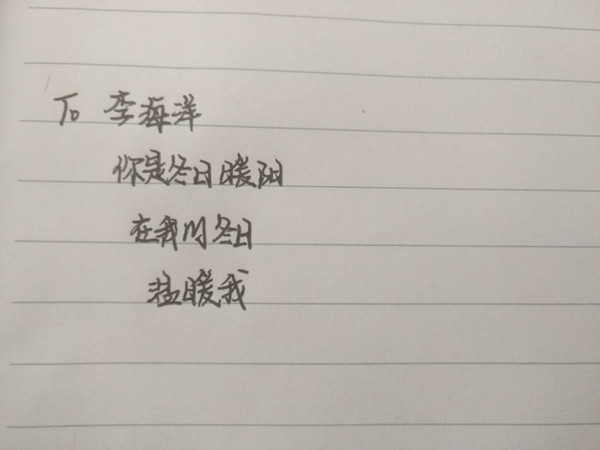 To 李海洋
你是冬日暖阳
在我的冬日
温暖我